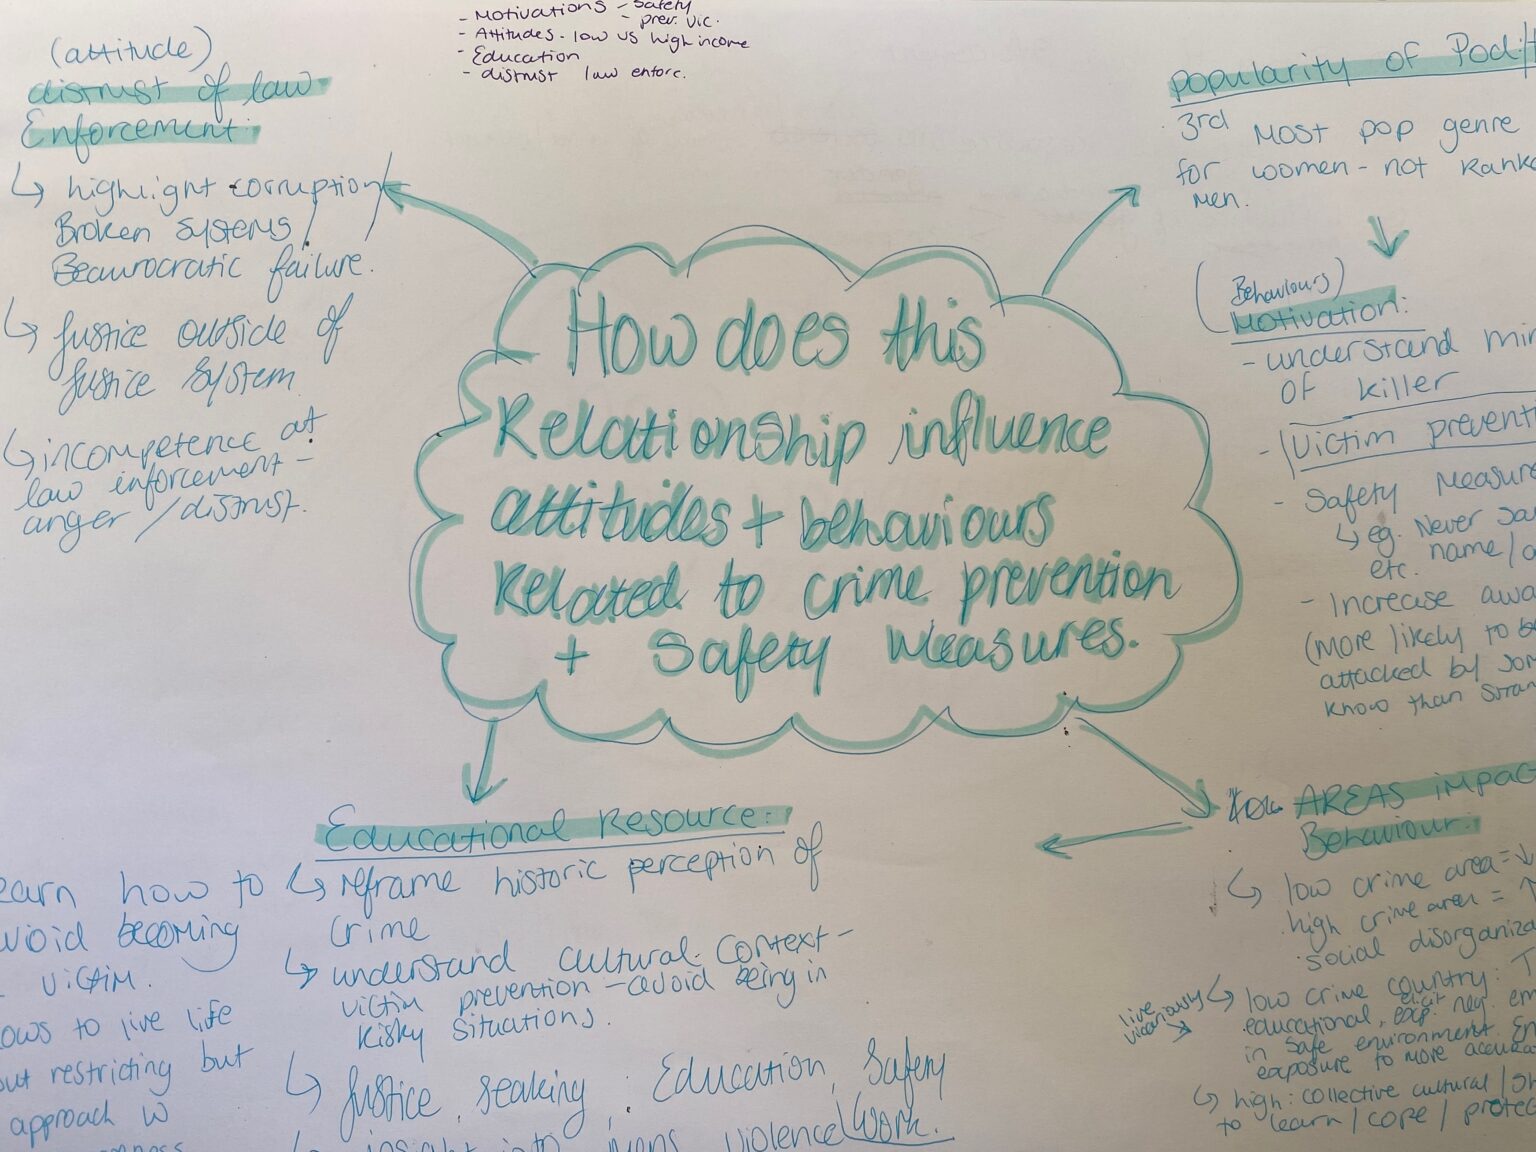 - Motivations - Safety
- prev. vic.
- Attitudes - low vs high income
- Education
- distrust law enforc.
(attitude)
distrust of law
Enforcement:
↳ highlight corruption/
Broken systems/
Beaurocratic failure.
↳ Justice outside of
Justice System
↳ incompetence at
law enforcement -
anger / distrust.
How does this
Relationship influence
attitudes + behaviours
Related to crime prevention
+ Safety Measures.
popularity of Pod
3rd Most pop genre
for women - not Ranke
Men.
(Behaviours)
Motivation:
- understand min
of killer
- Victim preventi
- Safety Measure
↳ eg. Never
name/
etc.
- Increase awa
(More likely to be
attacked by som
know than stran
Educational Resource:
↳ reframe historic perception of
Crime
↳ understand cultural Context -
victim prevention - avoid being in
Risky Situations.
↳ Justice, seaking, Education, Safety
Work.
insight into mens violence
earn how to
void becoming
victim.
ows to live life
out restricting but
approach w
AREAS impac
Behaviour:
↳ low crime area = ↓
high crime area = ↑
social disorganiza
live
vicariously
↳ low crime country: T
educational, elicit exp. neg. em
in safe environment. En
exposure to more accura
↳ high: collective cultural / Sh
to learn / cope / protec